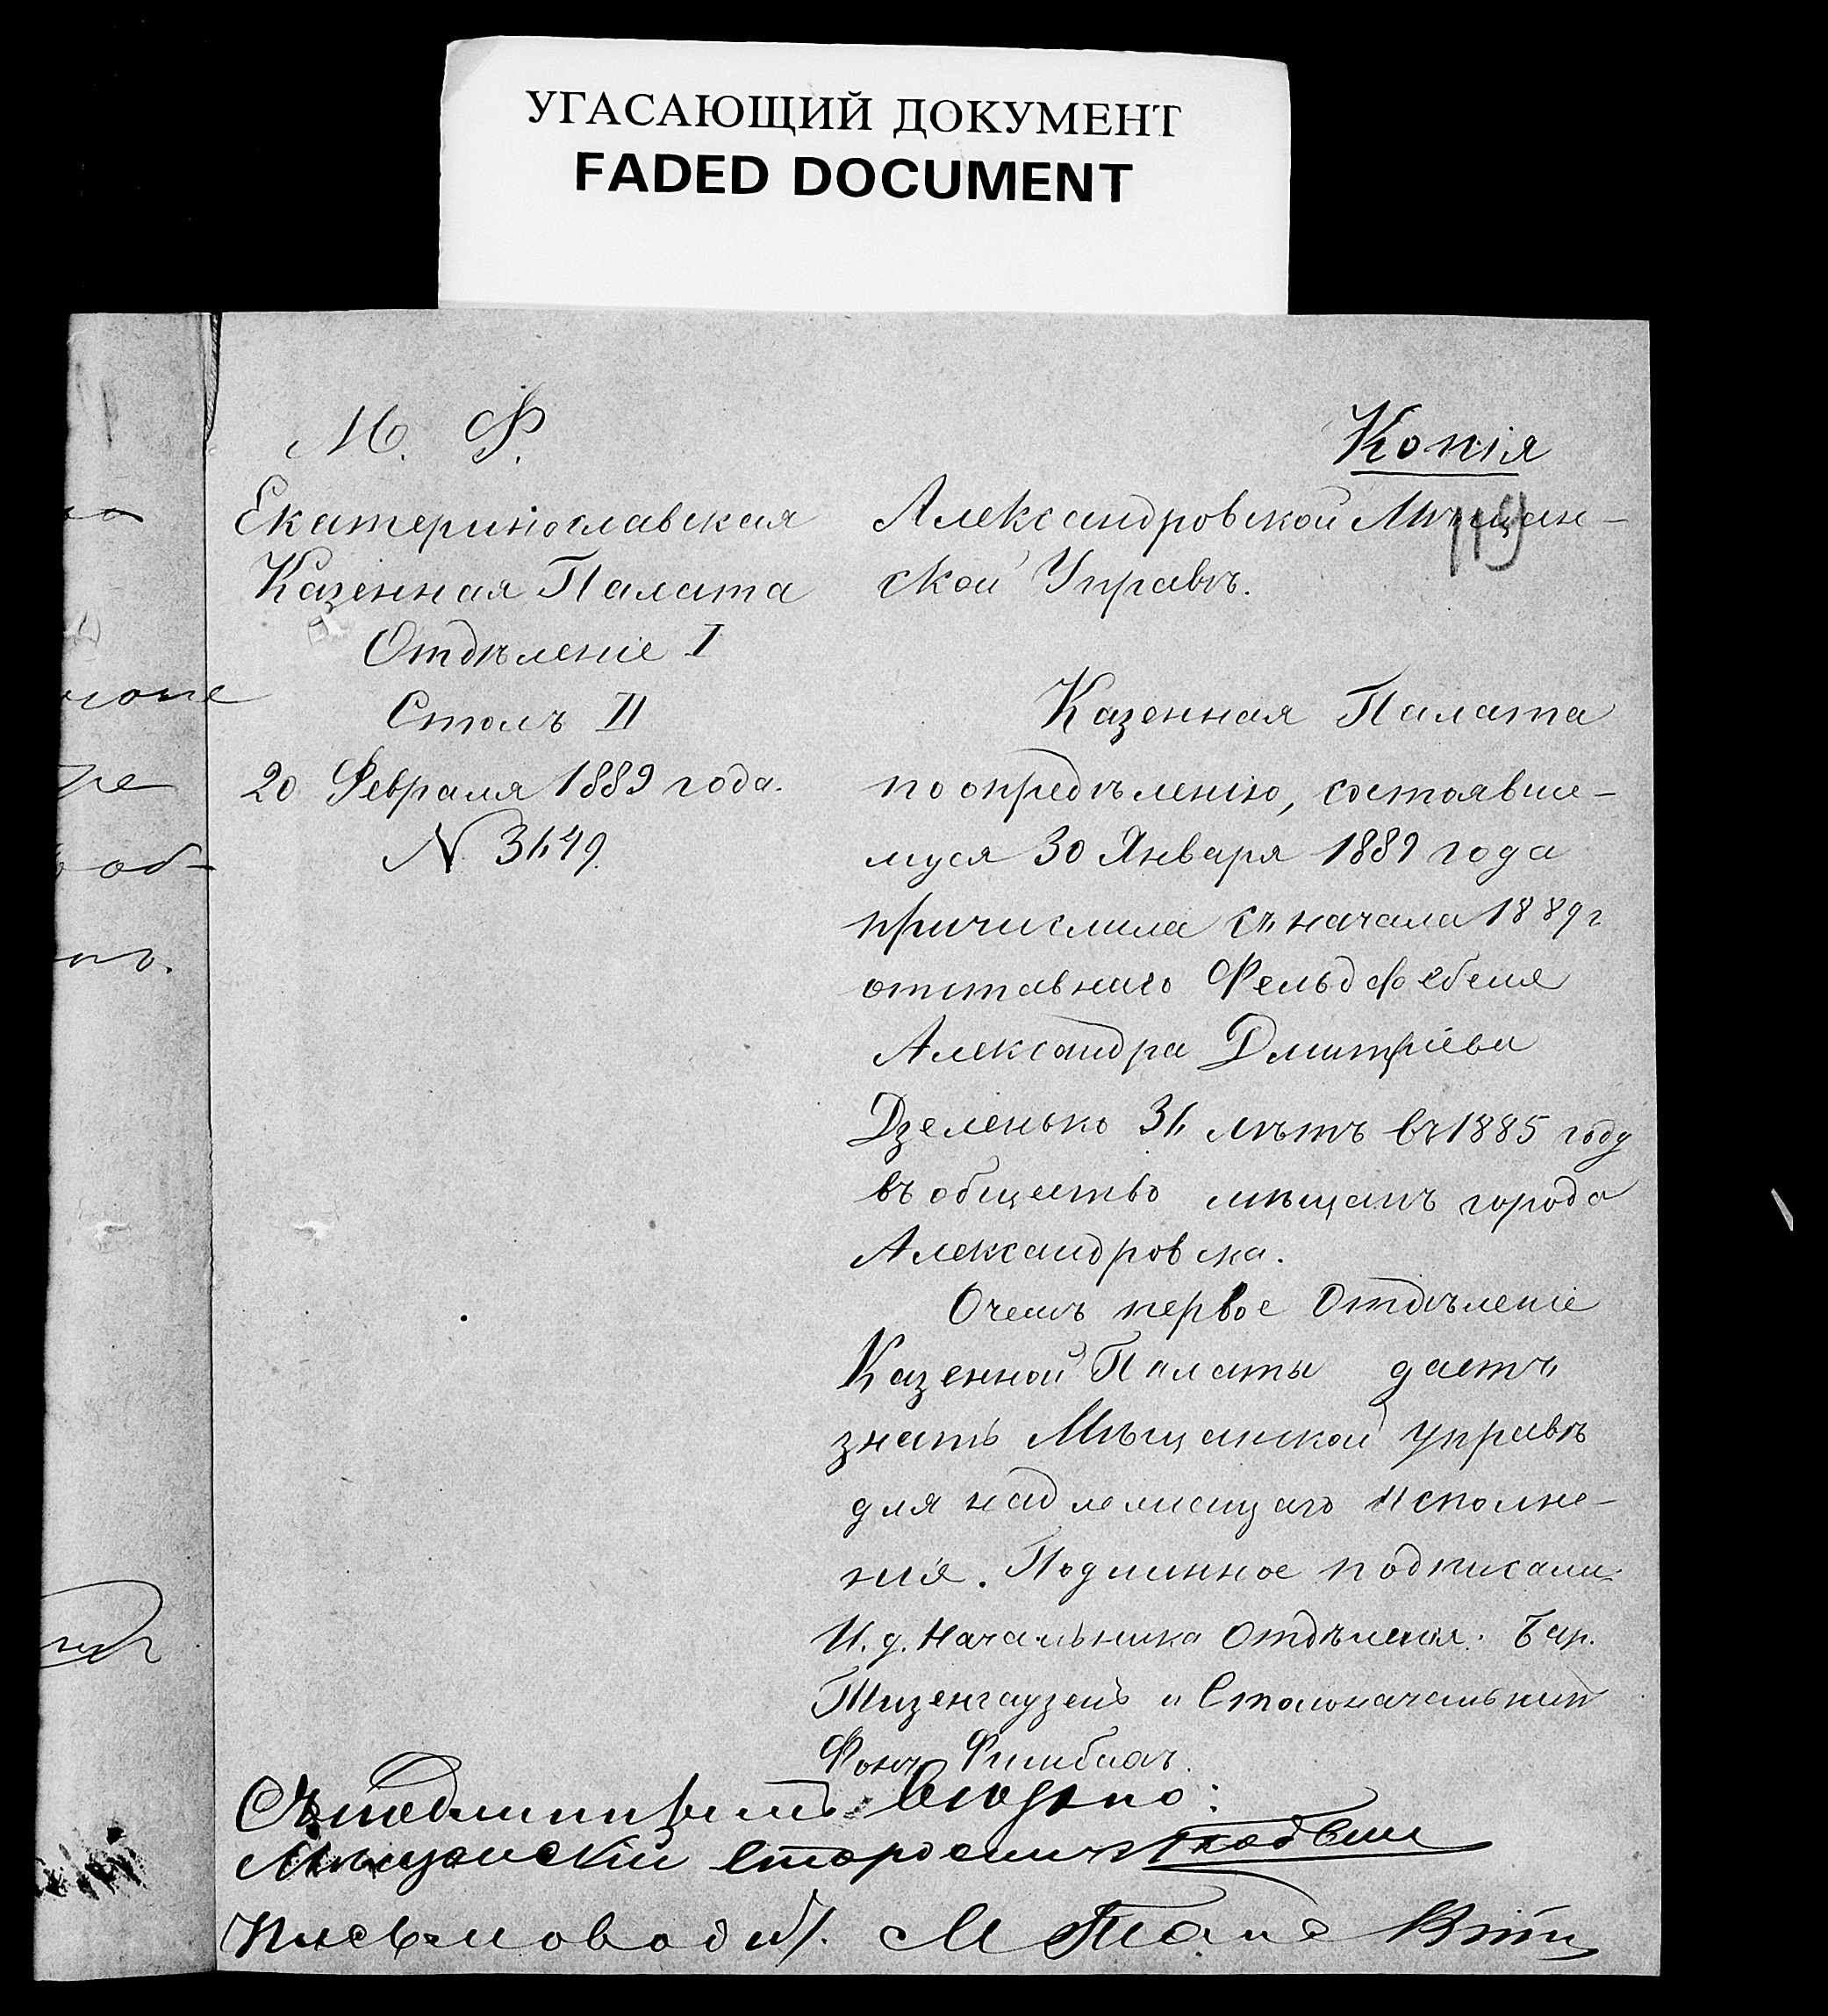 УГАСАЮЩИЙ ДОКУМЕНТ
FADED DOCUMENT
М. Ф.
Екатеринославская
Казенная Палата
Отдѣленіе I
Столъ II
20 Февраля 1889 года.
N 3449.
Копія
119
Александровской Мѣщан-
ской Управѣ.
Казенная Палата
по опредѣленію, состоявше-
муся 30 Января 1889 года
причислила съ начала 1889 г
отставнаго Фельдфебеля
Александра Дмитріева
Дзеленько 34 лѣтъ въ 1885 году
въ общество мѣщанъ города
Александровска.
О чемъ первое Отдѣленіе
Казенной Палаты даетъ
знать Мѣщанской Управѣ
для надлежащаго исполне-
нія. Подлинное подписали
И. д. Начальника Отдѣленія. Бар.
Тизенгаузенъ и Столоначальникъ
Фонъ
Съ подлиннымъ вѣрно:
Мѣщанскій Староста
Письмоводит. М